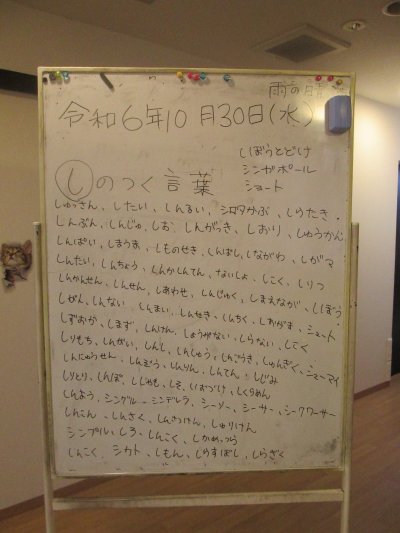 雨のち晴
令和6年10月30日(水)
しぼうとどけ
シンガポール
ショート
しのつく言葉
しゅっさん、したい、しんるい、シロタかぶ、しらたき、
しんぶん、しんじゅ、しお、しんがっき、しおり、しゅうかん
しんぱい、しまうま、しものせき、しんばし、しながわ、しがマ
しんたい、しんちょう、しんかしんてん、ないしょ、しこく、しりつ
しんかんせん、しんせん、しあわせ、しんじゅく、しまえなが、しぼう
しぜん、しんない、しんまい、しんせき、しんちく、しおがま、シュート
しずおか、しまず、しんけん、しょうがない、しらない、しこく
しりもち、しんかい、しんし、しんしゅう、しんごうき、しゅんぎく、シューマイ
しんにゅうせい、しんぼう、しんりん、しんてん、しじみ
しりとり、しんぽ、ししゃも、しそ、しおづけ、しくらめん
しんよう、シングル、シンデレラ、シーソー、シーサー、シークワーサー
しんこん、しんさく、しんさつけん、しゅりけん
シンプル、しろ、しんこく、しかめっつら
しんこく、シカト、しもん、しらすぼし、しらぎく